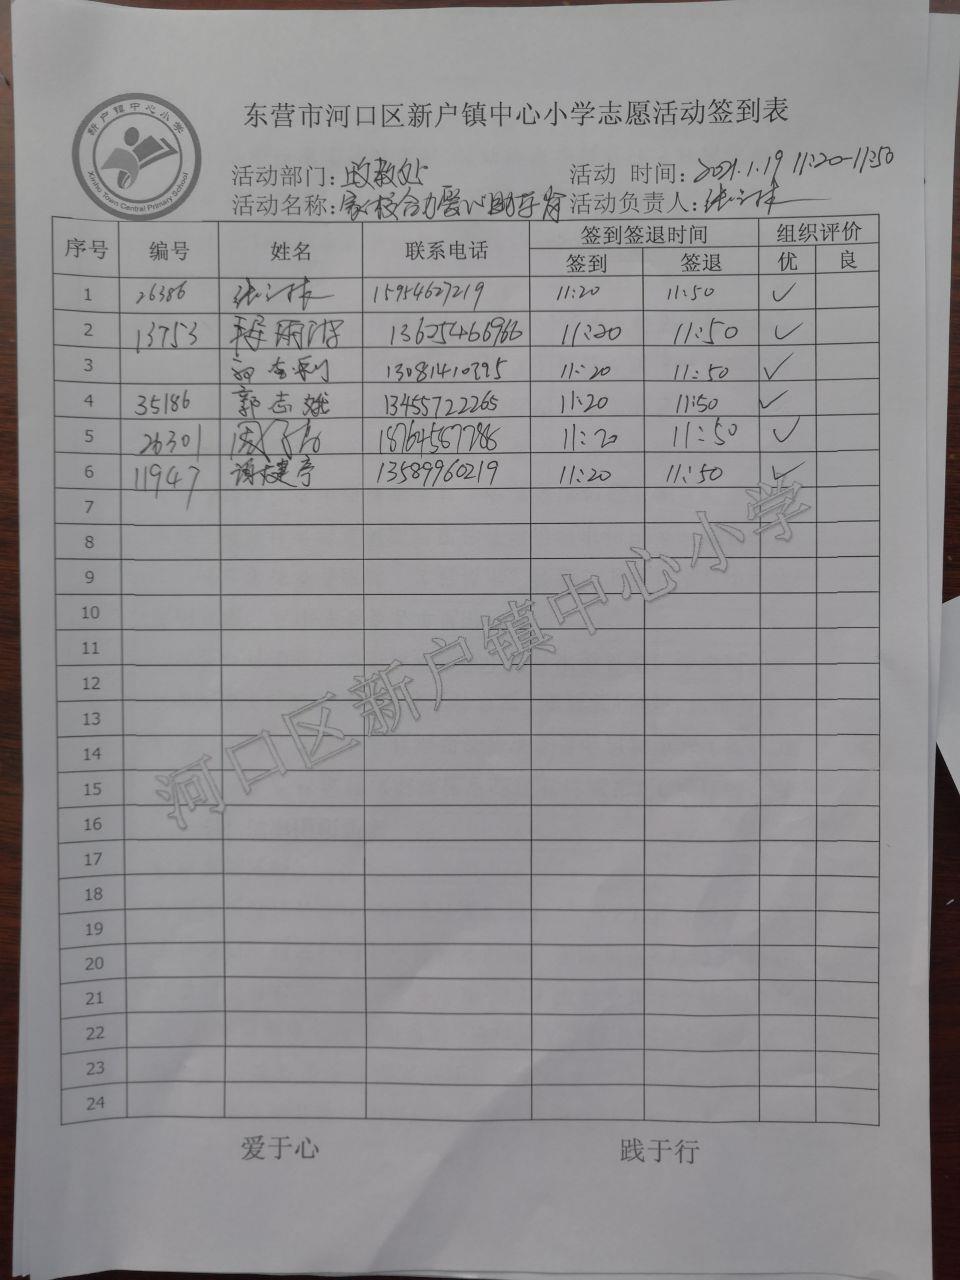 新户镇中心小学
Xinhu Town Central Primary School
东营市河口区新户镇中心小学志愿活动签到表
活动部门：政教处 活动 时间：2021.1.19 11:20-11:50
活动名称：家校合力爱心助 活动负责人：
序号 编号 姓名 联系电话 签到签退时间 组织评价
签到 签退 优 良
1 26386 15954627219 11:20 11:50 ✓
2 13753 13625466966 11:20 11:50 ✓
3 13081410395 11:20 11:50 ✓
4 35186 郭志娥 13455722265 11:20 11:50 ✓
5 26301 18764587786 11:20 11:50 ✓
6 11947 谢建亭 13589960219 11:20 11:50 ✓
7
8
9
10
11
12
13
14
15
16
17
18
19
20
21
22
23
24
河口区新户镇中心小学
爱于心 践于行